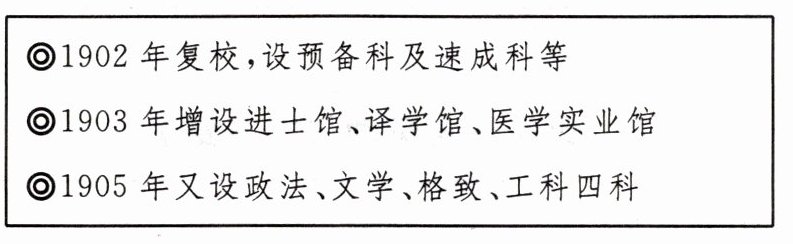 ◎1902 年复校,设预备科及速成科等
◎1903 年增设进士馆、译学馆、医学实业馆
◎1905 年又设政法、文学、格致、工科四科